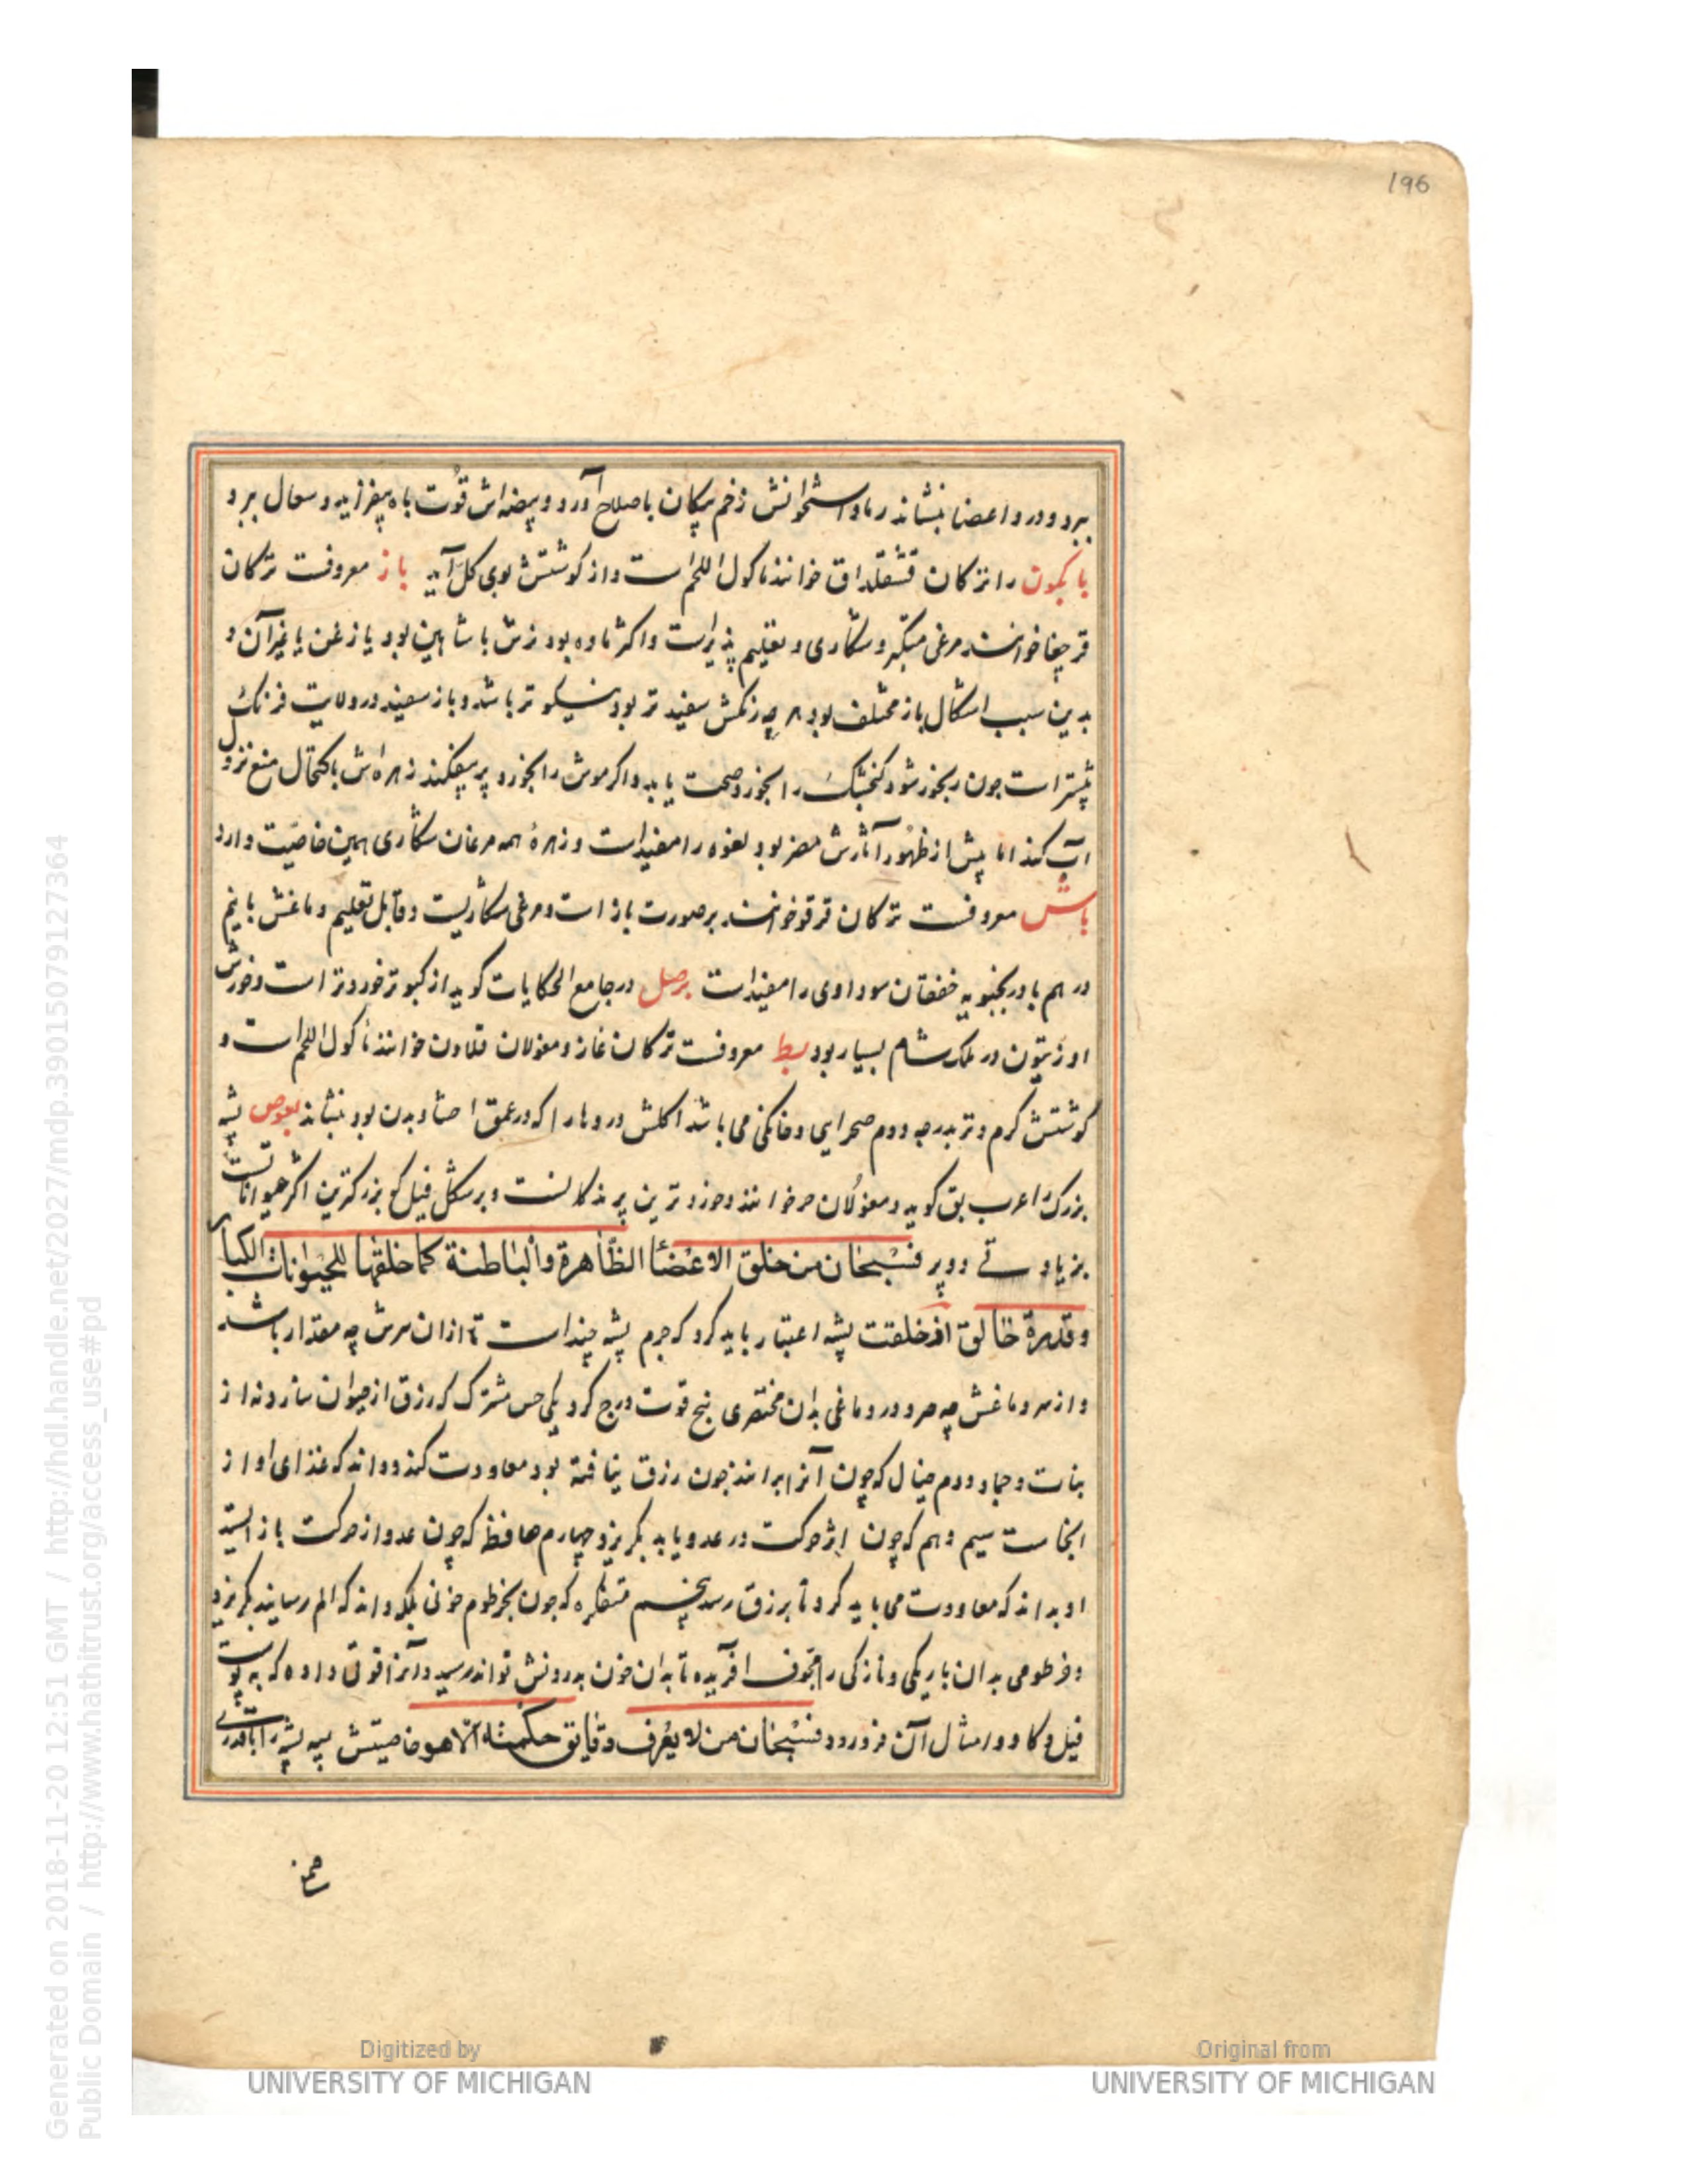 196
ببرد و درد اعضا بنشاند رماد استخوانش زخم پیکان باصلاح آورد و بیضه‌اش قوّت باه بیفزاید و سعال ببرد
با کمون را ترکان قشقلداق خوانند ماکول اللحم است و از کوشتش بوی کل آید باز معروفست ترکان
قرجغا خوانند مرغی متکبر و شکاری و تعلیم پذیر است و اکثر ماده بود نرش با شاهین بود یا زغن یا غیر آن و
بدین سبب اشکال باز مختلف بود هر چه رنکش سفید تر بود نیکو تر باشد و باز سفید در ولایت فرنک
بیشتر است جون رنجور شود کنجشک را بخورد صحت یابد و اکر موش را بخورد پر بیفکند زهره‌اش باکتحال منع نزول
آب کند اما پیش از ظهور آثارش مضر بود لغوه را مفید است و زهرهٔ همه مرغان شکاری همین خاصیّت دارد
باشه معروفست ترکان قرقو خوانند بر صورت باز است و مرغی شکاریست و قابل تعلیم دماغش با نیم
درهم بادرنجبویه خفقان سوداوی را مفید است برصل در جامع الحکایات کوید از کبوتر خوردتر است و خورش
او زیتون در ملک شام بسیار بود بط معروفست ترکان غاز و مغولان قلاون خوانند ماکول اللحم است و
کوشتش کرم و تر بدرجه دوم صحرایی و خانکی می باشد اکلش دردها را که در عمق احشا و بدن بود بنشاند بعوض پشه
بزرک را عرب بق کوید و مغولان خوانند و خورد ترین پرندکانست و بر شکل فیل که بزرکترین اکثر حیواناتست
بزیادتی دو پر فسبحان من خلق الاعضا الظاهرة والباطنة کما خلقها للحیوانات الکبار
وقدرة خالق از خلقت پشه اعتبار باید کرد که جرم پشه چند است تا از ان سرش چه مقدار باشد
و از سر دماغش چه و در دماغی بدان مختصری پنج قوت درج کرد یکی حس مشترک که رزق از حیوان سازد نه از
نبات و جماد دوم خیال که چون آنرا برانند جون رزق یافته بود معاودت کند و داند که غذای او از
انجاست سیم وهم که چون اثر حرکت در عدو یابد بکریزد چهارم حافظ که چون عدو از حرکت باز ایستد
او بداند که معاودت می باید کرد تا برزق رسد پنجم متفکره که جون بخرطوم خونی بمکد داند که الم رسانید بکریزد
و خرطومی بدان باریکی و نازکی را مجوف افریده تا بدان خون بدرونش تواند رسید و آنرا قوتی داده که به پوست
فیل و کاو و امثال آن فرو رود فسبحان من لا یعرف دقایق حکمته الا هو خاصیتش پیه پشه را
Digitized by
UNIVERSITY OF MICHIGAN
Original from
UNIVERSITY OF MICHIGAN
Generated on 2018-11-20 12:51 GMT / http://hdl.handle.net/2027/mdp.39015079127364
Public Domain / http://www.hathitrust.org/access_use#pd